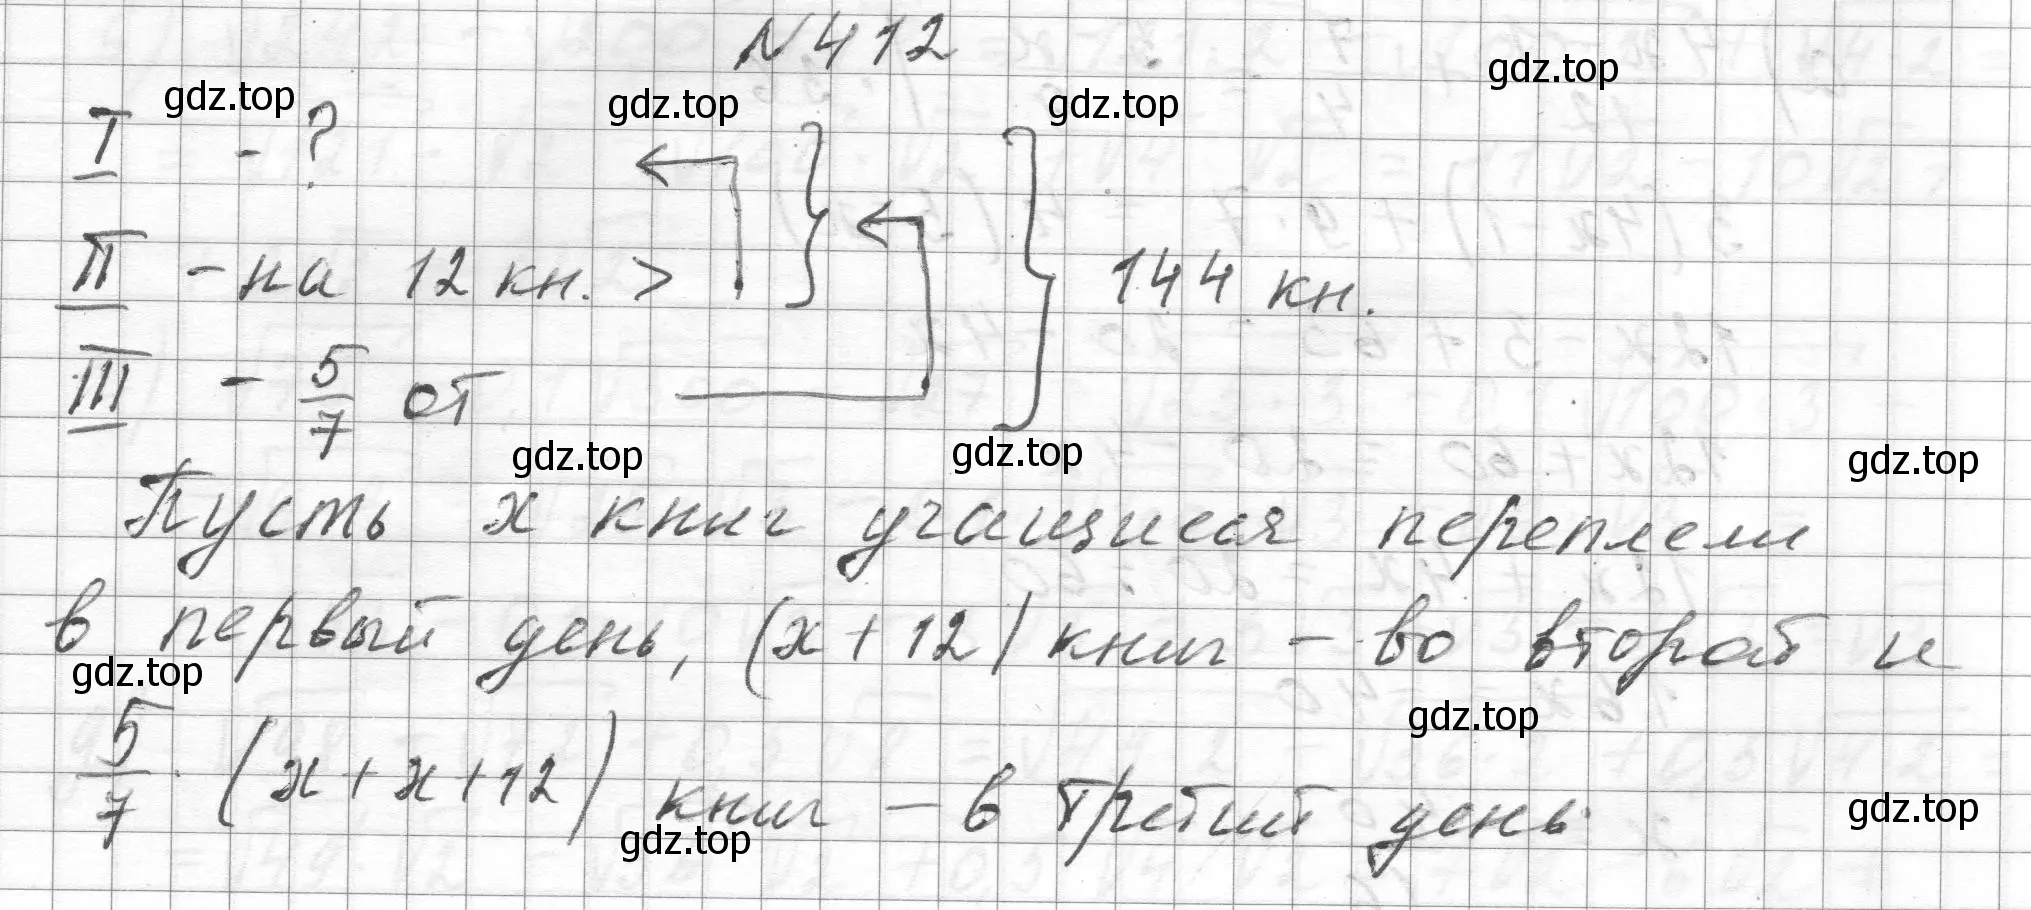 N 412
gdz.top
gdz.top
gdz.top
gdz.top
I - ?
II - на 12 кн. >
144 кн.
III - 5/7 от
gdz.top
gdz.top
gdz.top
Пусть x книг учащиеся переплели
в первый день, (x + 12) книг - во второй и
gdz.top
gdz.top
5/7 · (x + x + 12) книг - в третий день.
gdz.top
gdz.top